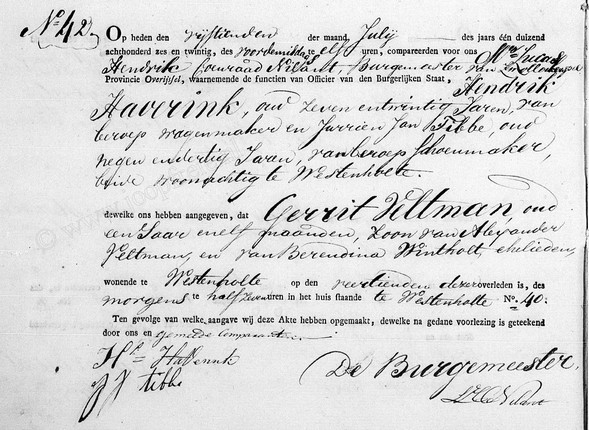 No. 42.
Op heden den vijftienden der maand, July des jaars één duizend
achthonderd zes en twintig, des voordemiddags te elf uren, compareerden voor ons Mr. Lucas
Hendrik Coenraad Nilant, Burgemeester van Zwollerkerspel
Provincie Overijssel, waarnemende de functien van Officier van den Burgerlijken Staat, Hendrik
Haverink, oud zeven en twintig Jaren, van
beroep wagenmaker en Jurrien Jan Tibbe, oud
negen en dertig Jaren, van beroep Schoenmaker,
beide woonachtig te Westenholte
dewelke ons hebben aangegeven, dat Gerrit Veltman, oud
een Jaar en elf maanden, zoon van Alexander
Veltman, en van Berendina Wintholt, ehelieden,
wonende te Westenholte op den veertienden dezer overleden is, des
morgens te half zeven uren in het huis staande te Westenholte No. 40.
Ten gevolge van welke aangave wij deze Akte hebben opgemaakt, dewelke na gedane voorlezing is geteekend
door ons en gemelde Comparanten
H Haverink
J J tibbe
De Burgemeester,
LHCNilant